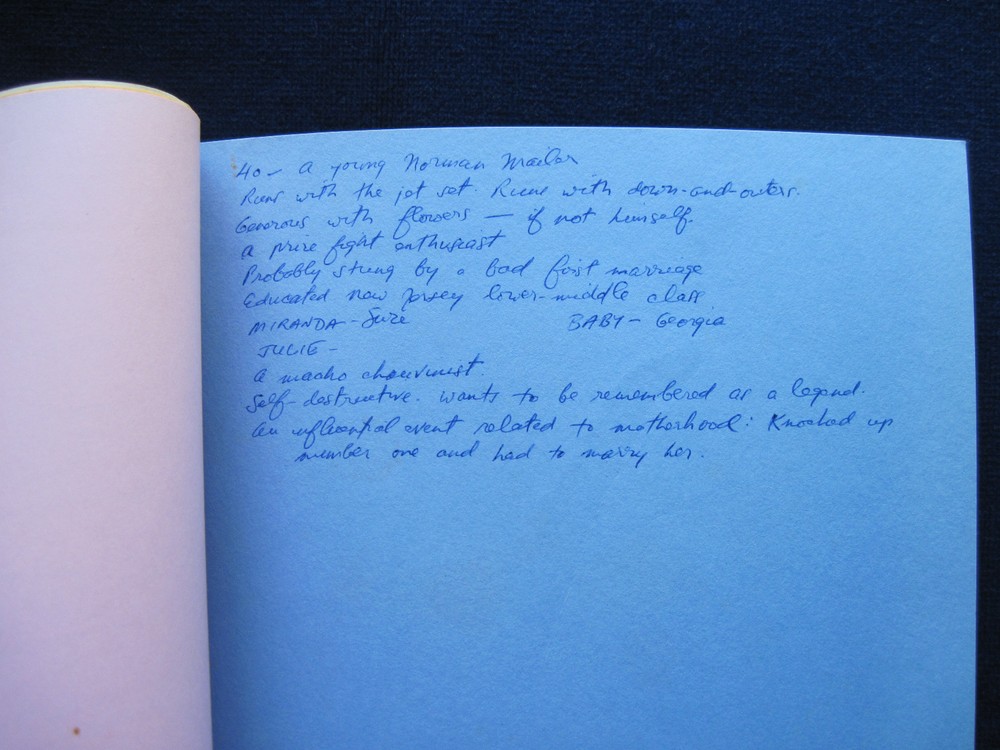 40 - a young Norman Mailer
Runs with the jet set. Runs with down-and-outers.
Generous with flowers — if not himself.
a prize fight enthusiast
Probably stung by a bad first marriage
Educated New Jersey lower-middle class.
MIRANDA - Suze BABY - Georgia
JULIE -
a macho chauvinist.
Self-destructive. wants to be remembered as a legend.
An influential event related to motherhood: Knocked up
number one and had to marry her.